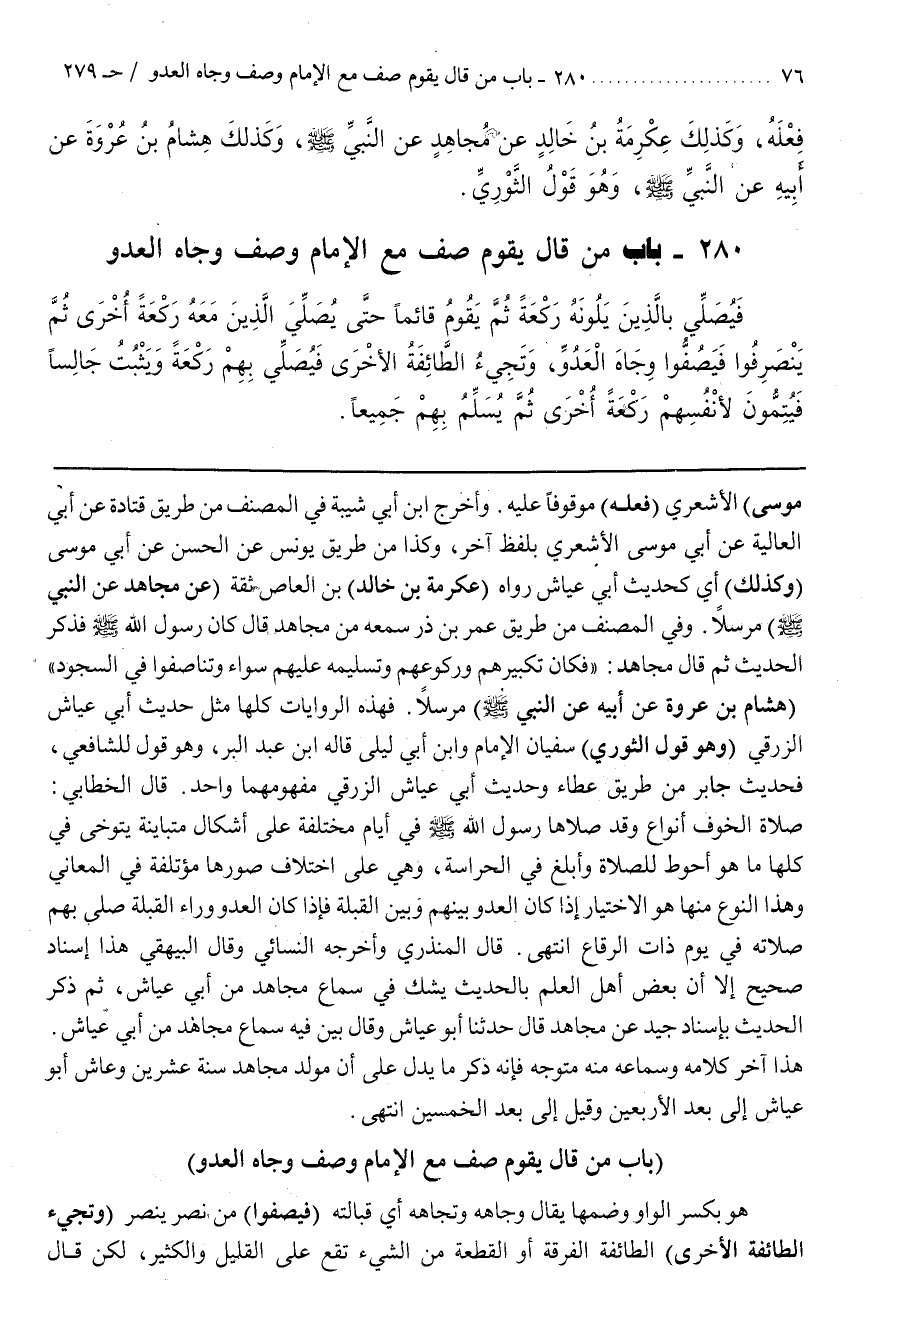 ٧٦ ...................... ٢٨٠ ـ باب من قال يقوم صف مع الإمام وصف وجاه العدو / حـ ٢٧٩
فِعْلَهُ، وَكَذلِكَ عِكْرِمَةُ بنُ خَالِدٍ عن مُجاهِدٍ عن النَّبيِّ ﷺ، وَكَذلكَ هِشامُ بنُ عُرْوَةَ عن
أَبِيهِ عن النَّبيِّ ﷺ، وَهُوَ قَوْلُ الثَّوْرِيِّ.
٢٨٠ ـ باب من قال يقوم صف مع الإمام وصف وجاه العدو
فَيُصَلِّي بالَّذِينَ يَلُونَهُ رَكْعَةً ثُمَّ يَقُومُ قائماً حتَّى يُصَلِّيَ الَّذِينَ مَعَهُ رَكْعَةً أُخْرَى ثُمَّ
يَنْصَرِفُوا فَيَصُفُّوا وِجَاهَ الْعَدُوِّ، وَتَجِيءُ الطَّائِفَةُ الأخْرَى فَيُصَلِّي بِهِمْ رَكْعَةً وَيَثْبُتُ جَالِساً
فَيُتِمُّونَ لأنْفُسِهِمْ رَكْعَةً أُخْرَى ثُمَّ يُسَلِّمُ بِهِمْ جَمِيعاً.
موسى) الأشعري (فعله) موقوفاً عليه. وأخرج ابن أبي شيبة في المصنف من طريق قتادة عن أبي
العالية عن أبي موسى الأشعري بلفظ آخر، وكذا من طريق يونس عن الحسن عن أبي موسى
(وكذلك) أي كحديث أبي عياش رواه (عكرمة بن خالد) بن العاص ثقة (عن مجاهد عن النبي
ﷺ) مرسلاً. وفي المصنف من طريق عمر بن ذر سمعه من مجاهد قال كان رسول الله ﷺ فذكر
الحديث ثم قال مجاهد: «فكان تكبيرهم وركوعهم وتسليمه عليهم سواء وتناصفوا في السجود»
(هشام بن عروة عن أبيه عن النبي ﷺ) مرسلاً. فهذه الروايات كلها مثل حديث أبي عياش
الزرقي (وهو قول الثوري) سفيان الإمام وابن أبي ليلى قاله ابن عبد البر، وهو قول للشافعي،
فحديث جابر من طريق عطاء وحديث أبي عياش الزرقي مفهومهما واحد. قال الخطابي:
صلاة الخوف أنواع وقد صلاها رسول الله ﷺ في أيام مختلفة على أشكال متباينة يتوخى في
كلها ما هو أحوط للصلاة وأبلغ في الحراسة، وهي على اختلاف صورها مؤتلفة في المعاني
وهذا النوع منها هو الاختيار إذا كان العدو بينهم وبين القبلة فإذا كان العدو وراء القبلة صلى بهم
صلاته في يوم ذات الرقاع انتهى. قال المنذري وأخرجه النسائي وقال البيهقي هذا إسناد
صحيح إلا أن بعض أهل العلم بالحديث يشك في سماع مجاهد من أبي عياش، ثم ذكر
الحديث بإسناد جيد عن مجاهد قال حدثنا أبو عياش وقال بين فيه سماع مجاهد من أبي عياش.
هذا آخر كلامه وسماعه منه متوجه فإنه ذكر ما يدل على أن مولد مجاهد سنة عشرين وعاش أبو
عياش إلى بعد الأربعين وقيل إلى بعد الخمسين انتهى.
(باب من قال يقوم صف مع الإمام وصف وجاه العدو)
هو بكسر الواو وضمها يقال وجاهه وتجاهه أي قبالته (فيصفوا) من نصر ينصر (وتجيء
الطائفة الأخرى) الطائفة الفرقة أو القطعة من الشيء تقع على القليل والكثير، لكن قال